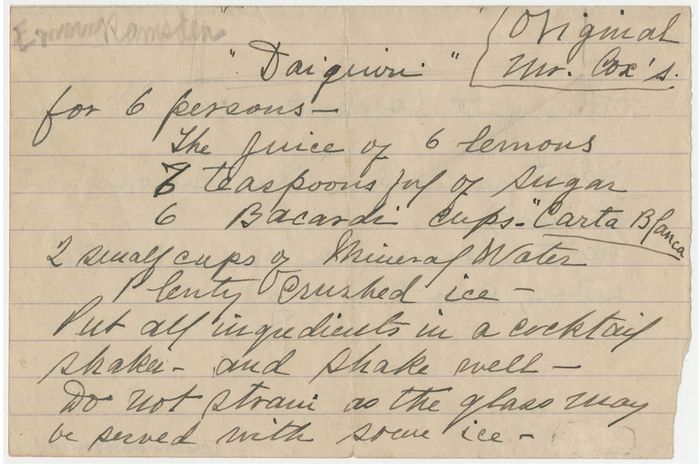 "Daiquiri" (Original
Mr. Cox's.
for 6 persons—
The juice of 6 lemons
6 teaspoons ful of sugar
6 Bacardi cups - "Carta Blanca
2 small cups of Mineral Water
Plenty crushed ice —
Put all ingredients in a cocktail
shaker - and shake well —
Do not strain as the glass may
be served with some ice —